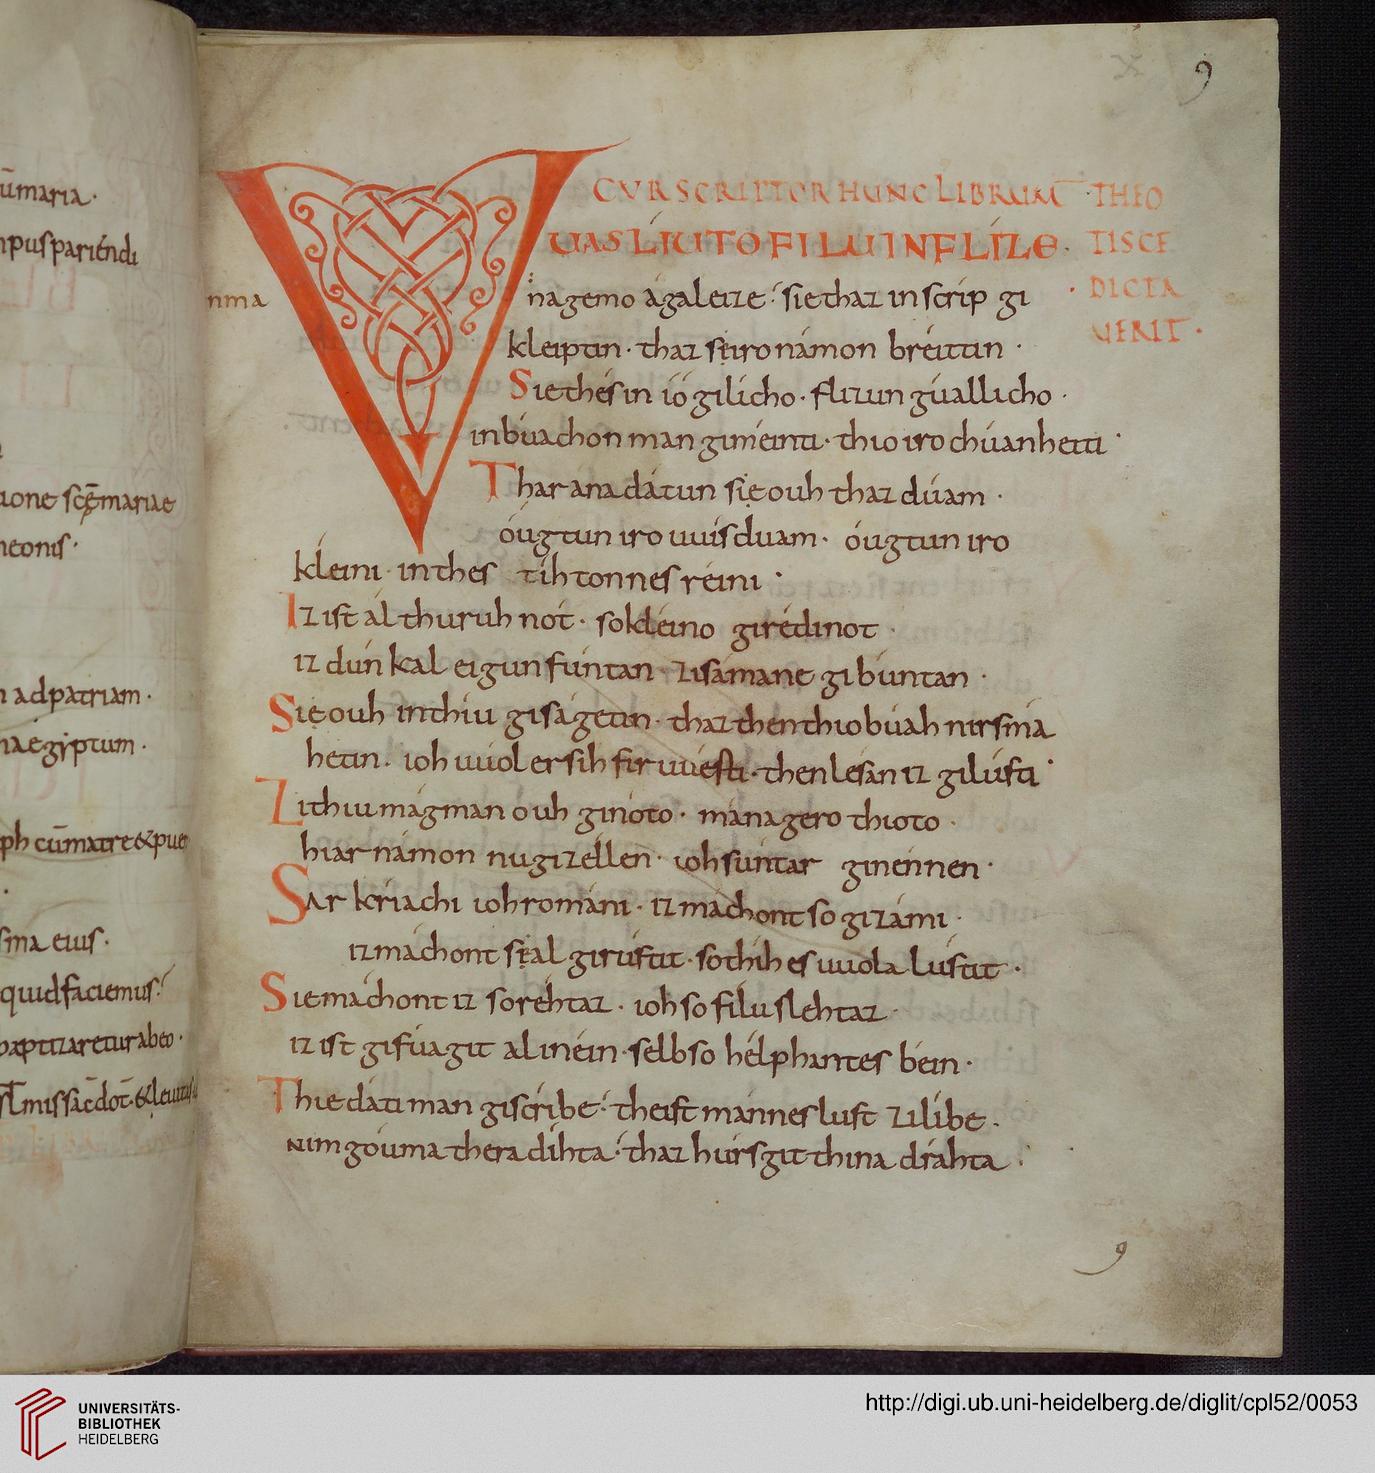 ūmaria·
mpuspariéndi
ione scęmariae
neonis·
adpatriam·
naegẏptum·
ph cūmatre&pue
sma eius·
quidfaciemus
baptizareturabeo·
9
CVR SCRIPTOR HUNC LIBRUM · THEO
TISCE
DICTA
VERIT·
VUAS LIUTO FILU IN FLIZE·
nma
in agemo ágaleize· sie thaz in scrip gi
kleiptin· thaz sie iro námon bréittin·
Sie thés in íó gilicho· flizun gúallicho·
in búachon man giméinti· thio iro chúanheiti·
Thar ana dátun sie ouh thaz dúam·
óugtun iro uuisduam· óugtun iro
kléini in thes tihtonnes réini·
Iz ist ál thuruh not· so kléino girédinot·
iz dúnkal eigun fúntan· zisámane gibúntan·
Sie ouh in thiu giságetin· thaz then thio búah nirsmá
hetin· ioh uuol er sih firuuésti· then lésan iz gilústi·
Zi thiu mág man ouh ginóto· mánagero thioto·
hiar námon nu gizéllen· ioh súntar ginénnen·
Sar kriachi ioh románi· iz máchont so gizámi·
iz máchont sie al girústit· so thih es uuola lústit·
Sie máchont iz so réhtaz· ioh so filu slehtaz·
iz ist gifúagit al in éin· selb so hélphantes béin·
Thie dáti man giscríbe· theist mánnes lust zi líbe·
nim góuma thera díhta· thaz húrsgit thina dráhta·
9
UNIVERSITÄTS-
BIBLIOTHEK
HEIDELBERG
http://digi.ub.uni-heidelberg.de/diglit/cpl52/0053